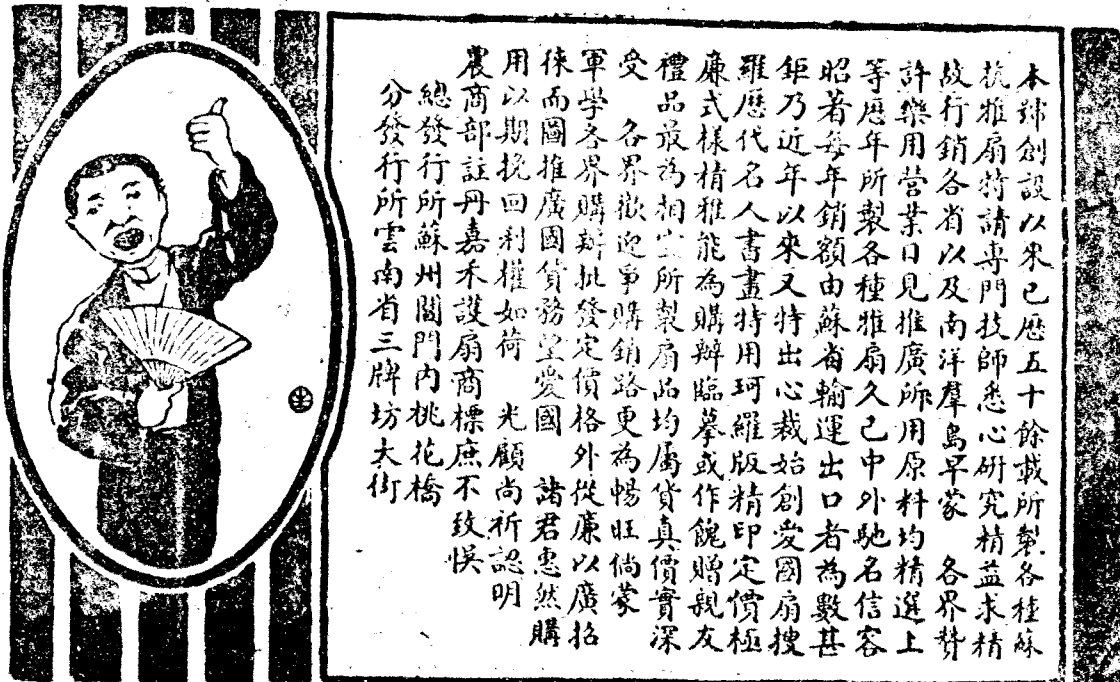 本號創設以來已歷五十餘載所製各種蘇
杭雅扇特請專門技師悉心研究精益求精
故行銷各省以及南洋羣島早蒙　各界贊
許樂用營業日見推廣所用原料均精選上
等歷年所製各種雅扇久已中外馳名信容
昭著每年銷額由蘇省輸運出口者為數甚
鉅乃近年以來又特出心裁始創愛國扇搜
羅歷代名人書畫特用珂羅版精印定價極
廉式樣精雅能為購辦臨摹或作餽贈親友
禮品最為相宜所製扇品均屬貨真價實深
受　各界歡迎爭購銷路更為暢旺倘蒙
軍學各界購辦批發定價格外從廉以廣招
徠而圖推廣國貨務望愛國　諸君惠然購
用以期挽回利權如荷　光顧尚祈認明
農商部註册嘉禾護扇商標庶不致悞
總發行所蘇州閶門內桃花橋
分發行所雲南省三牌坊大街